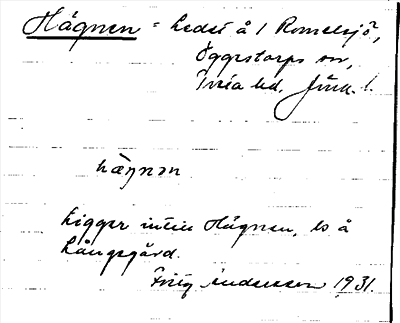 Hägnen = ledet å 1 Romelsjö,
Öggestorps sn,
Tveta hd, Jönk. l.
hægnən
Ligger intill Hägnen, bs å
Långegärd.
Fritz Andersson 1931.